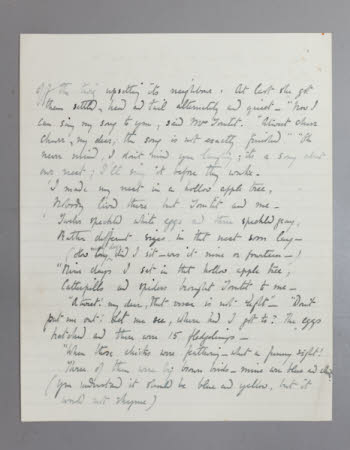 upsetting its neighbour. At last she got
them settled, head and tail alternately and quiet— "Now I
can sing my song to you, said Mrs Tomtit. "
my dear; the song is not exactly finished" "Oh
never mind, I don't mind you laughing; it's a song about
our nest; I'll sing it before they wake.
'I made my nest in a hollow apple tree,
Nobody lived there but Tomtit and me—
Twelve speckled white eggs and three speckled gray,
Rather different sizes in that nest soon lay—
(How long did I sit— was it nine or fourteen—!
"Nine days I sat in that hollow apple tree,
Caterpillars and spiders brought Tomtit to me—
my dear, that verse is not right"— "Don't
put me out! let me see, where had I got to? The eggs
hatched and there were 15 fledgelings—
'When those chicks were feathering— what a funny sight!
Three of them were big brown birds— nine were blue and white
(You understand it should be blue and yellow, but it
would not rhyme)